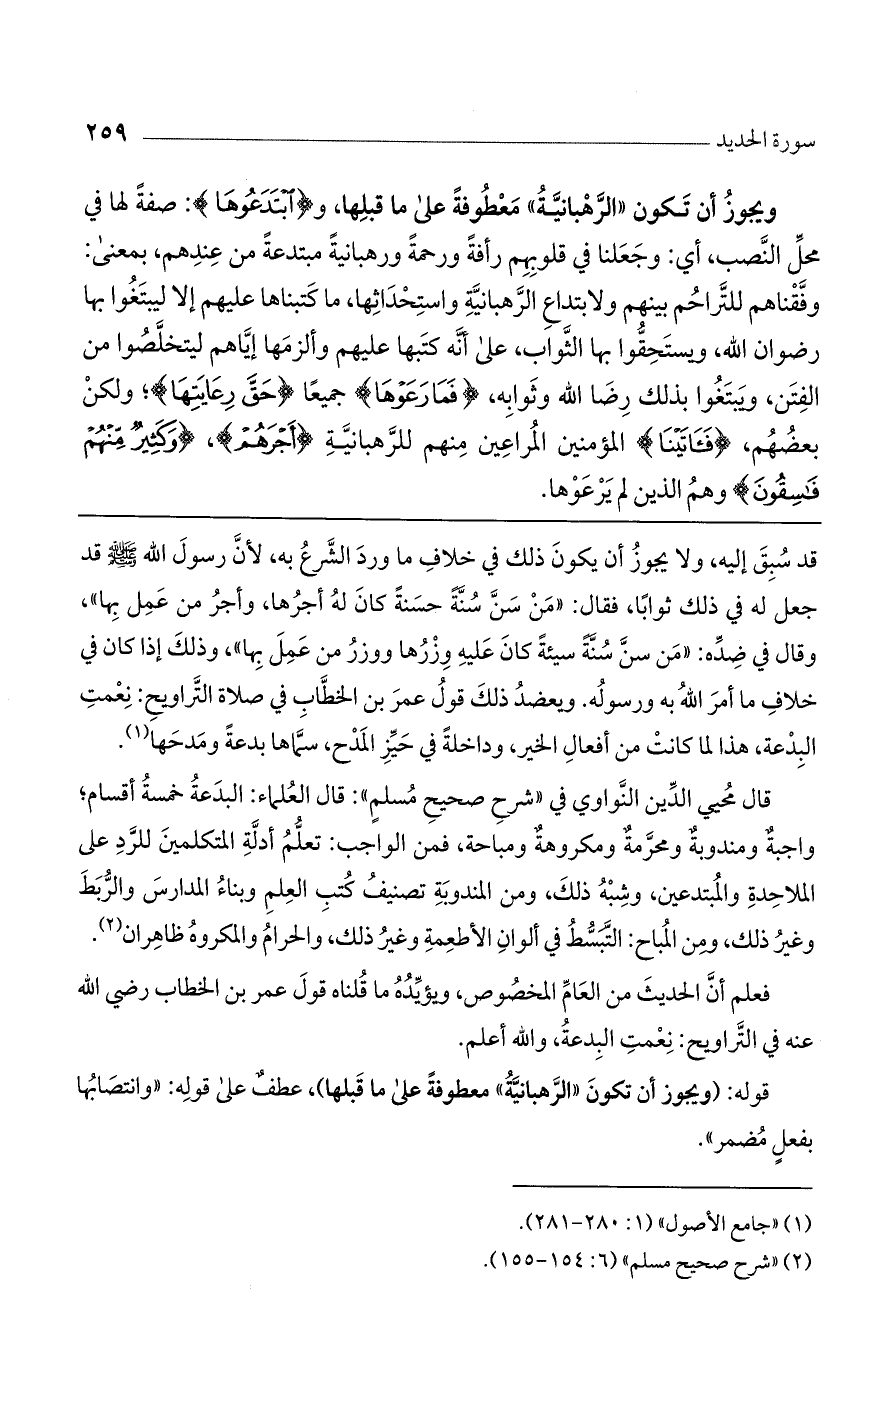 سورة الحديد ٢٥٩
ويجوزُ أن تَكون «الرَّهْبانيَّةُ» مَعْطُوفةً علىٰ ما قبلِها، و﴿ٱبْتَدَعُوهَا﴾: صفةً لها في
محلِّ النَّصب، أي: وجَعَلنا في قلوبِهِم رأفةً ورحمةً ورهبانيةً مبتدعةً من عِندِهم، بمعنىٰ:
وفَّقْناهم للتَّراحُم بينهم ولابتداعِ الرَّهبانيَّةِ واستِحْداثِها، ما كَتبناها عليهم إلا ليبتَغُوا بها
رضوان الله، ويستَحِقُّوا بها الثَّواب، علىٰ أنَّه كتَبها عليهم وألزمَها إيَّاهم ليتخلَّصُوا من
الفِتَن، ويَبتَغُوا بذلك رِضَا الله وثَوابِه، ﴿فَمَا رَعَوْهَا﴾ جميعًا ﴿حَقَّ رِعَايَتِهَا﴾؛ ولكنْ
بعضُهُم، ﴿فَـَٔاتَيْنَا﴾ المؤمنين المُراعِين مِنهم للرَّهبانيَّـةِ ﴿أَجْرَهُمْ﴾، ﴿وَكَثِيرٌ مِّنْهُمْ
فَـٰسِقُونَ﴾ وهمُ الذين لم يَرْعَوْها.
قد سُبِقَ إليه، ولا يجوزُ أن يكونَ ذلك في خلافِ ما وردَ الشَّرعُ به، لأنَّ رسولَ الله ﷺ قد
جعل له في ذلك ثوابًا، فقال: «مَنْ سَنَّ سُنَّةً حسَنةً كانَ لهُ أجرُها، وأجرُ من عَمِل بِها»،
وقال في ضِدِّه: «مَن سنَّ سُنَّةً سيئةً كانَ عَليهِ وِزْرُها ووزرُ من عَمِلَ بِها»، وذلكَ إذا كان في
خلافِ ما أمرَ اللهُ به ورسولُه. ويعضدُ ذلكَ قولُ عمرَ بن الخطَّابِ في صلاة التَّراويح: نِعْمتِ
البِدْعة، هذا لما كانتْ من أفعالِ الخير، وداخلةً في حَيِّزِ المَدْح، سمَّاها بدعةً ومَدحَها(١).
قال مُحيي الدِّين النَّواوي في «شرحِ صحيحِ مُسلمٍ»: قال العُلماء: البدَعةُ خمسةُ أقسام؛
واجبةٌ ومندوبةٌ ومحرَّمةٌ ومكروهةٌ ومباحة، فمن الواجب: تعلُّمُ أدلَّةِ المتكلمينَ للرَّدِ على
الملاحِدةِ والمُبتدعين، وشِبْهُ ذلكَ، ومن المندوبَةِ تصنيفُ كُتبِ العِلمِ وبناءُ المدارسَ والرُّبَطَ
وغيرُ ذلك، ومِن المُباح: التَّبَسُّطُ في ألوانِ الأطعِمةِ وغيرُ ذلك، والحرامُ والمكروهُ ظاهِران(٢).
فعلم أنَّ الحديثَ من العَامِّ المخصُوص، ويؤيِّدُهُ ما قُلناه قولَ عمر بن الخطاب رضي الله
عنه في التَّراويح: نِعْمتِ البِدعةُ، والله أعلم.
قوله: (ويجوز أن تكونَ «الرَّهبانيَّةُ» معطوفةً علىٰ ما قَبلها)، عطفٌ علىٰ قولِه: «وانتصَابُها
بفعلٍ مُضمر».
(١) «جامع الأصول» (١: ٢٨٠-٢٨١).
(٢) «شرح صحيح مسلم» (٦: ١٥٤-١٥٥).